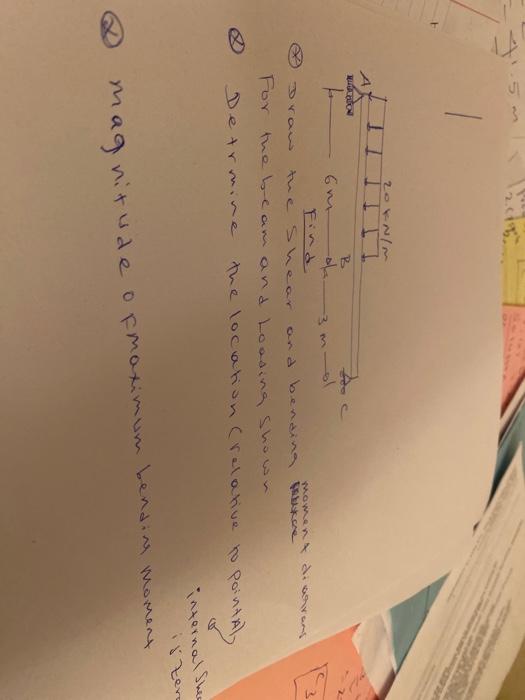 20 kN/m
A
B
C
6m
3 m
Find
* Draw the Shear and bending moment diagram
For the beam and Loading Shown
* Determine the location (relative to point A)
internal She
is Zer
* magnitude of maximum bending moment